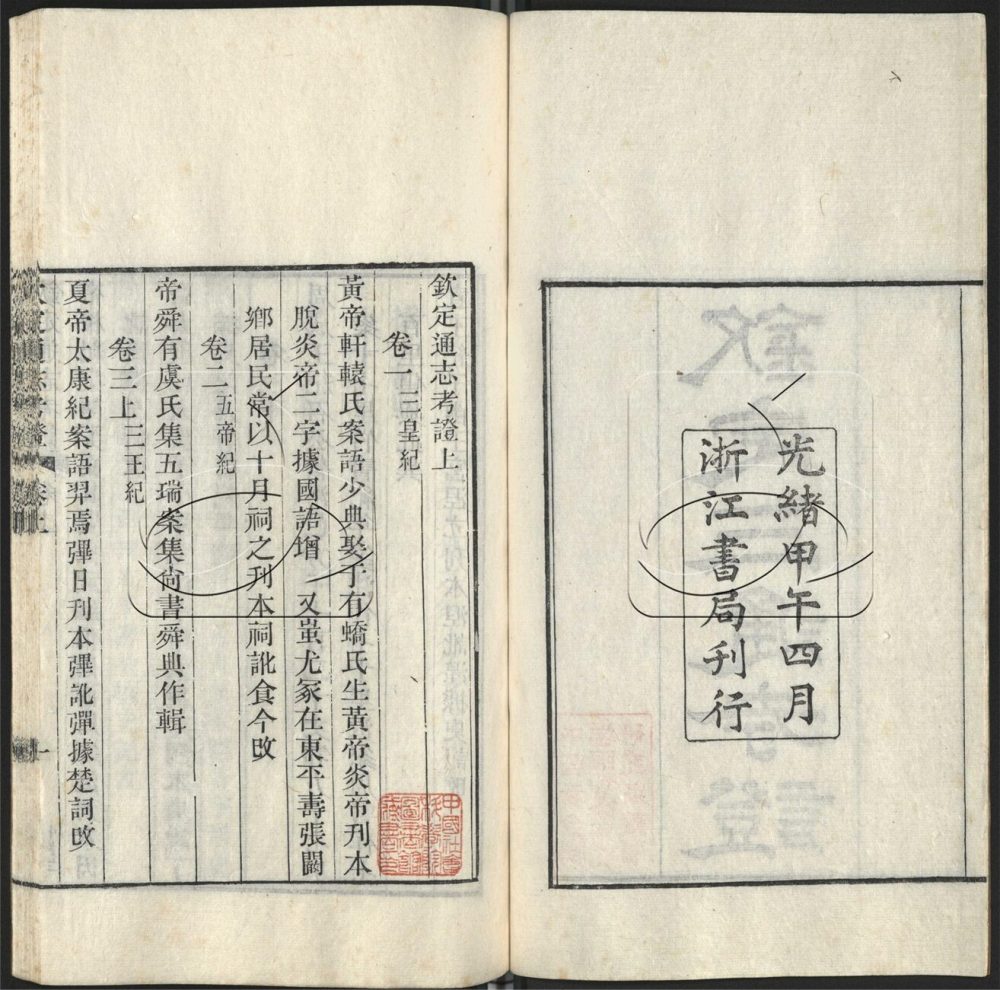 光緒甲午四月
浙江書局刊行
欽定通志考證上
卷一三皇紀
黃帝軒轅氏案語少典娶于有蟜氏生黃帝炎帝刊本
脫炎帝二字據國語增 又蚩尤冢在東平壽張闞
鄉居民常以十月祠之刊本祠訛食今攺
卷二五帝紀
帝舜有虞氏集五瑞案集尚書舜典作輯
卷三上三王紀
夏帝太康紀案語羿焉彃日刊本彃訛彈據楚詞攺
欽定通志考證 卷上
一
中國社會